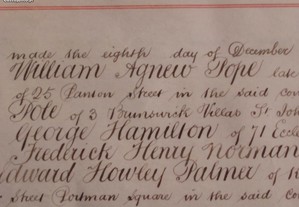 made the eighth day of December
William Agnew Pope late
of 25 Panton Street in the said cou
Pole of 3 Brunswick Villas St Joh
George Hamilton of 71 Eccle
Frederick Henry Norman
Edward Howley Palmer of
Street Portman Square in the said co